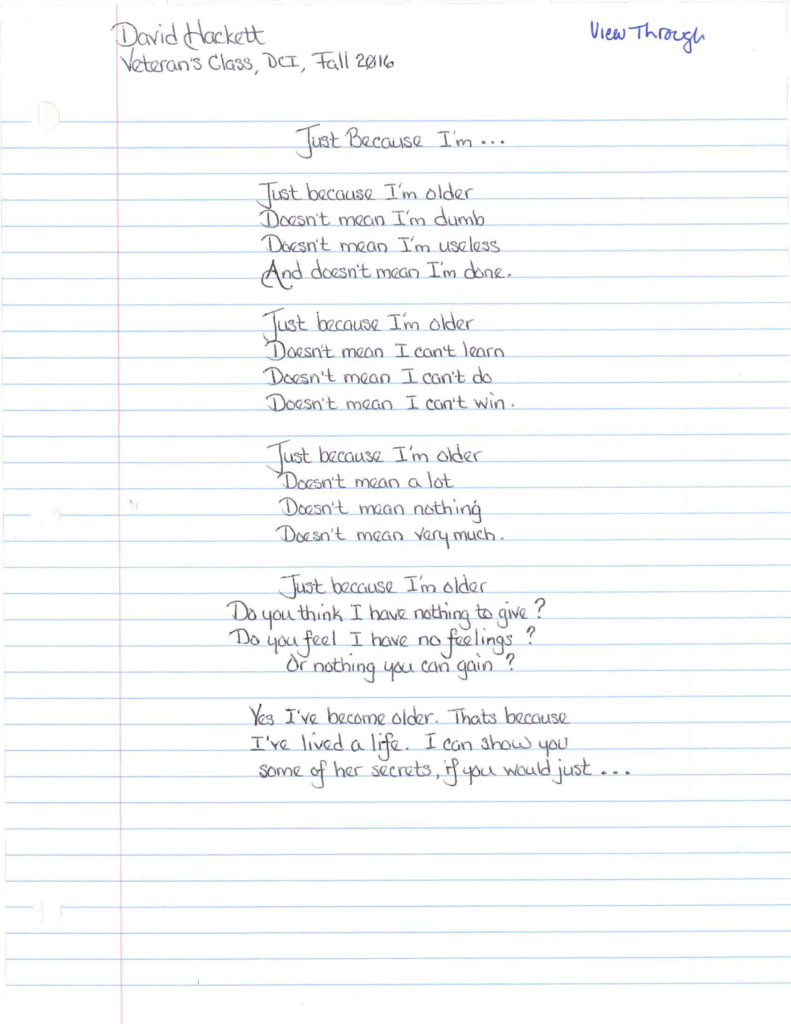 David Hackett
View Through
Veteran's Class, DCI, Fall 2016
Just Because I'm ...
Just because I'm older
Doesn't mean I'm dumb
Doesn't mean I'm useless
And doesn't mean I'm done.
Just because I'm older
Doesn't mean I can't learn
Doesn't mean I can't do
Doesn't mean I can't win.
Just because I'm older
Doesn't mean a lot
Doesn't mean nothing
Doesn't mean very much.
Just because I'm older
Do you think I have nothing to give?
Do you feel I have no feelings?
Or nothing you can gain?
Yes I've become older. Thats because
I've lived a life. I can show you
some of her secrets, if you would just ...